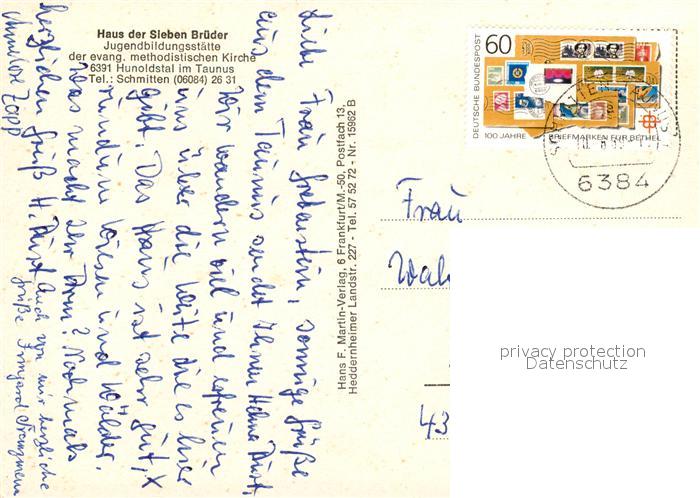 Haus der Sieben Brüder
Jugendbildungsstätte
der evang. methodistischen Kirche
6391 Hunoldstal im Taunus
Tel.: Schmitten (06084) 26 31
Liebe Frau sonnige Grüße
aus dem Taunus sendet Ihnen
Wir wandern viel und erfreuen
uns über die Leute die es hier
gibt. Das Haus ist sehr gut,
rundum Wiesen und Wälder.
Was macht Ihr Arm? Nochmals
herzlichen Gruß H.
Auch von mir herzliche
Grüße Irmgard
Zopp
Hans F. Martin-Verlag, 6 Frankfurt/M.-50, Postfach 13.
Heddernheimer Landstr. 227 - Tel. 57 52 72 - Nr. 15962 B
DEUTSCHE BUNDESPOST
60
100 JAHRE BRIEFMARKEN FÜR BETHEL
6384
Frau
43
privacy protection
Datenschutz